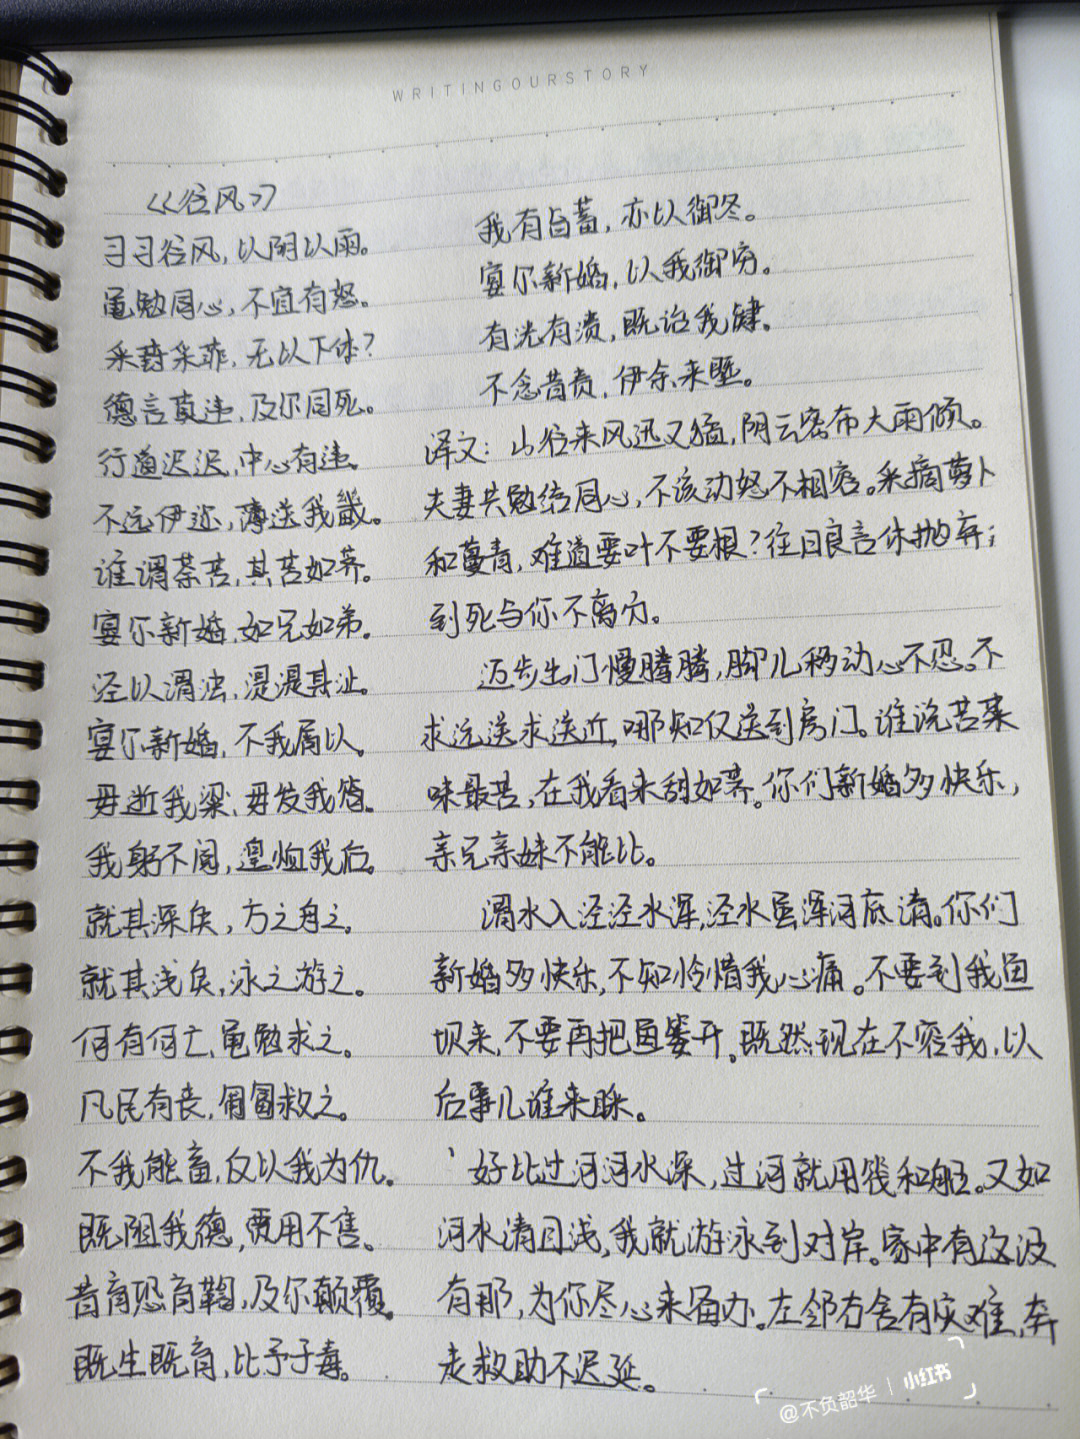 WRITINGOURSTORY
《谷风》
习习谷风,以阴以雨。
黾勉同心,不宜有怒。
采葑采菲,无以下体?
德音莫违,及尔同死。
行道迟迟,中心有违。
不远伊迩,薄送我畿。
谁谓荼苦,其苦如荠。
宴尔新婚,如兄如弟。
泾以渭浊,湜湜其沚。
宴尔新婚,不我屑以。
毋逝我梁,毋发我笱。
我躬不阅,遑恤我后。
就其深矣,方之舟之。
就其浅矣,泳之游之。
何有何亡,黾勉求之。
凡民有丧,匍匐救之。
不我能畜,反以我为仇。
既阻我德,贾用不售。
昔育恐育鞫,及尔颠覆。
既生既育,比予于毒。
我有旨蓄,亦以御冬。
宴尔新婚,以我御穷。
有洸有溃,既诒我肄。
不念昔者,伊余来塈。
译文:山谷来风迅又猛,阴云密布大雨倾。
夫妻共勉结同心,不该动怒不相容。采摘萝卜
和蔓青,难道要叶不要根?往日良言休抛弃;
到死与你不离分。
迈步出门慢腾腾,脚儿移动心不忍。不
求远送求送近,哪知仅送到房门。谁说苦菜
味最苦,在我看来甜如荠。你们新婚多快乐,
亲兄亲妹不能比。
渭水入泾泾水浑,泾水虽浑河底清。你们
新婚多快乐,不知怜惜我心痛。不要到我鱼
坝来,不要再把鱼篓开。既然现在不容我,以
后事儿谁来睬。
好比过河河水深,过河就用筏和艇。又如
河水清且浅,我就游泳到对岸。家中有这没
有那,为你尽心来备办。左邻右舍有灾难,奔
走救助不迟延。
@不负韶华 | 小红书